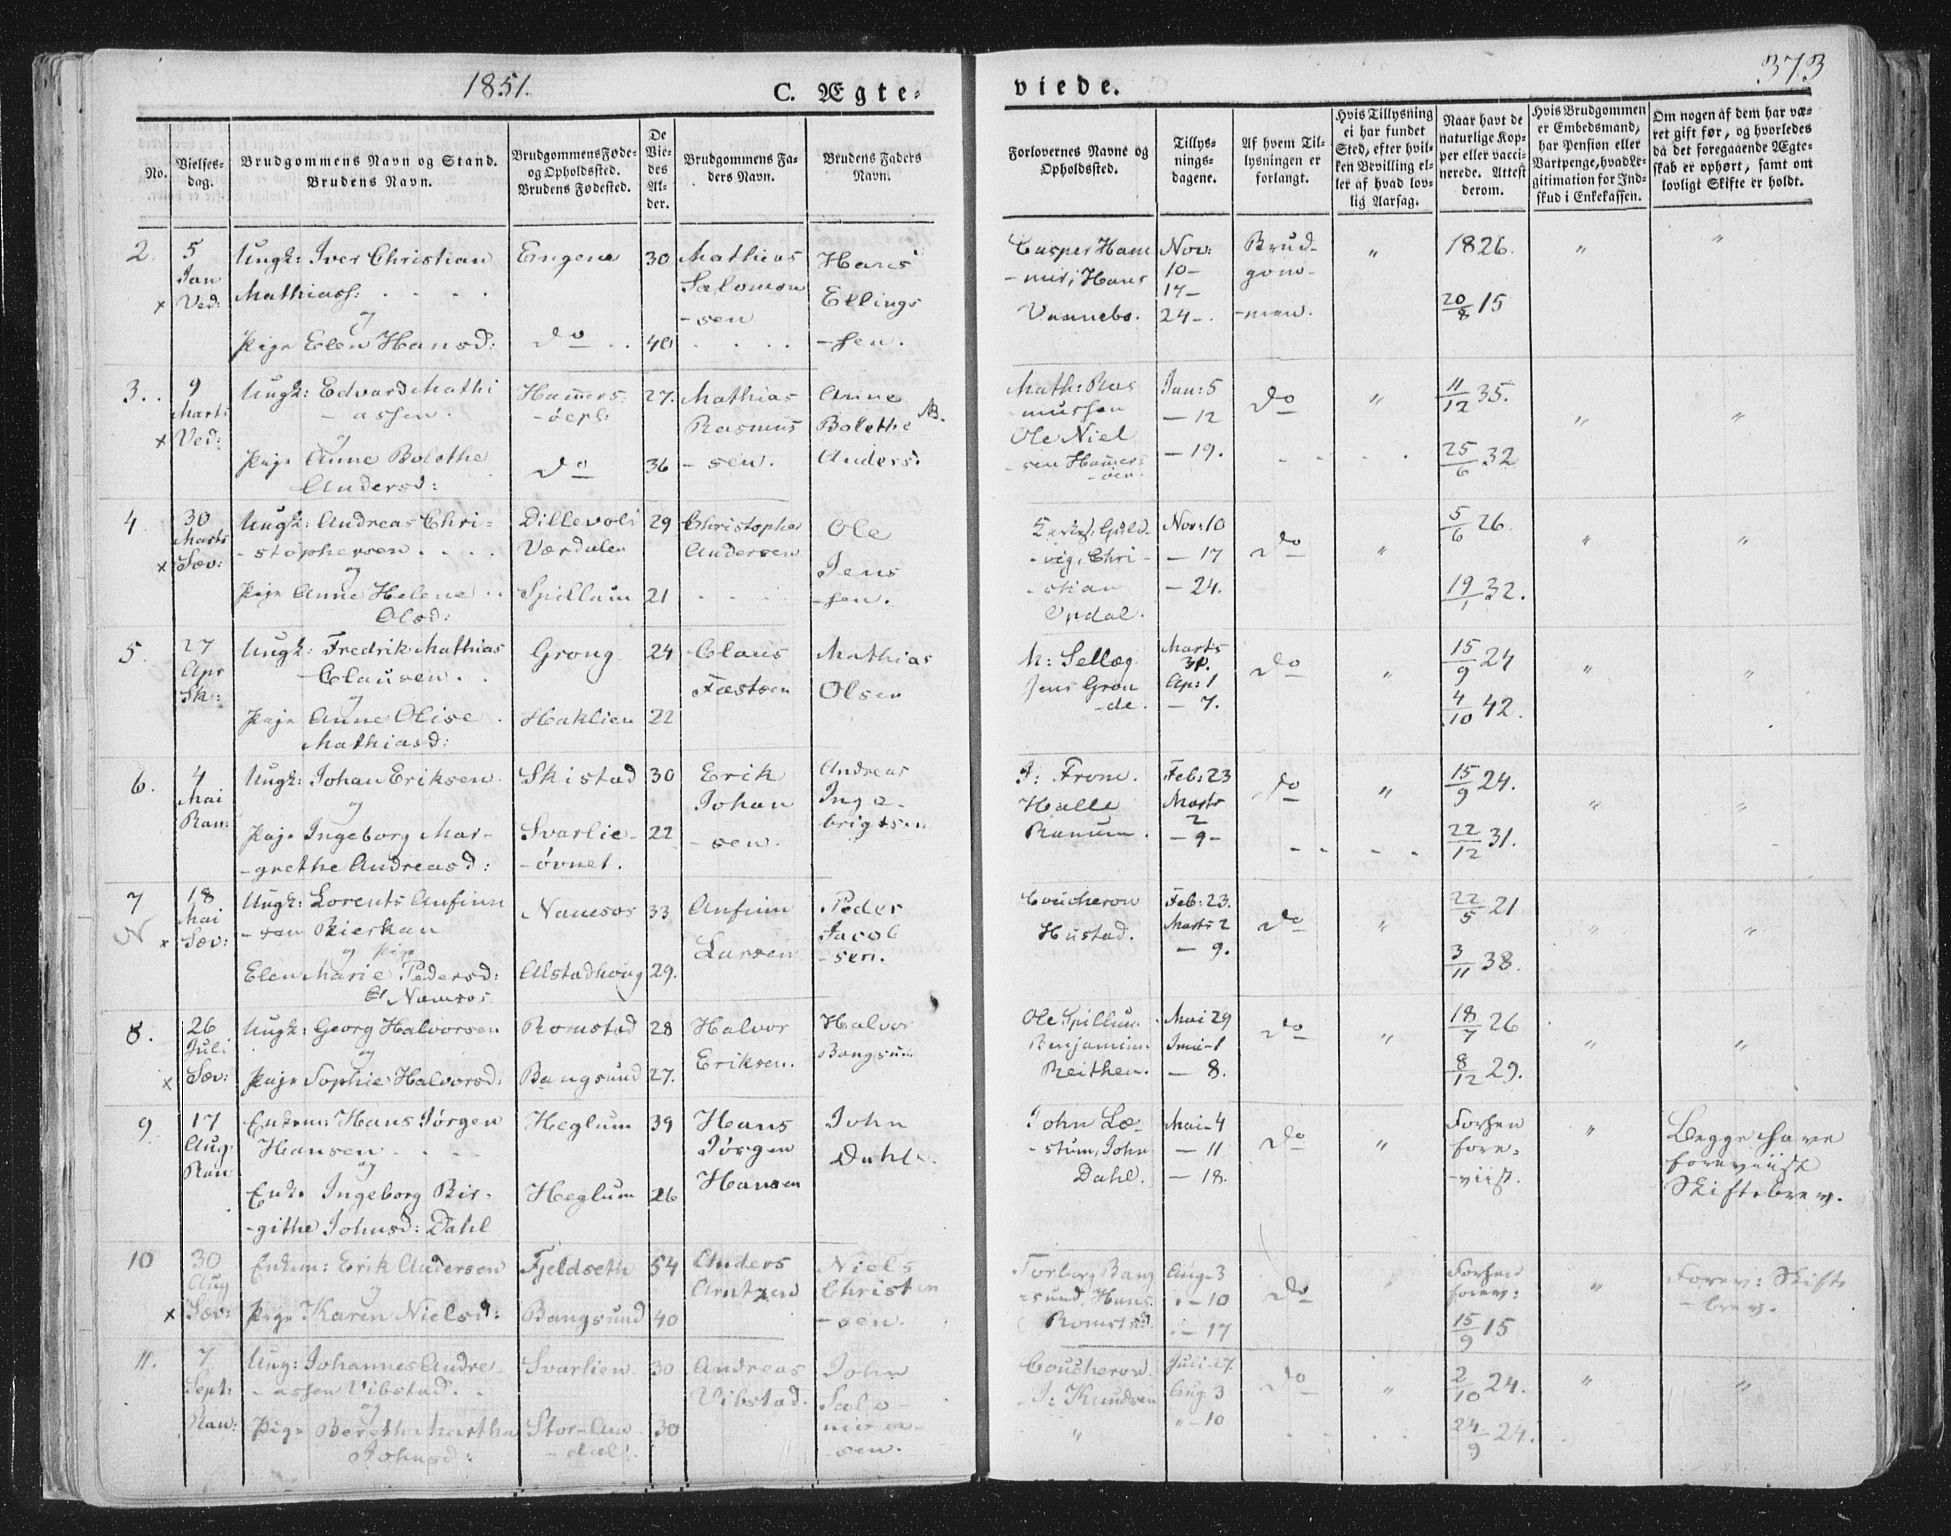 1851.
C. Ægte-
viede.
373
No.
Vielses-
dag.
Brudgommens Navn og Stand.
Brudens Navn.
Brudgommens Føde-
og Opholdssted.
Brudens Fødested.
De
Vie-
des
Al-
der.
Brudgommens Fa-
ders Navn.
Brudens Faders
Navn.
Forlovernes Navne og
Opholdssted.
Tillys-
nings-
dagene.
Af hvem Til-
lysningen er
forlangt.
Hvis Tillysning
ei har fundet
Sted, efter hvil-
ken Bevilling el-
ler af hvad lov-
lig Aarsag.
Naar havt de
naturlige Kop-
per eller vacci-
nerede. Attest
derom.
Hvis Brudgommen
er Embedsmand,
har Pension eller
Vartpenge, hvad Le-
gitimation for Ind-
skud i Enkekassen.
Om nogen af dem har væ-
ret gift før, og hvorledes
da det foregaaende Ægte-
skab er ophørt, samt om
lovligt Skifte er holdt.
2.
5
Jan
x Ved:
Ungk: Iver Christian
Mathiass: . . . .
og
Pige Elen Hansd:
Engene
do . .
30
40
Mathias
Salomon
-sen
. . . .
Hans
Ellings
-sen.
Casper Ham
Hans
Nov:
10-
17-
24-.
Brud-
gom-
-men.
"
1826.
20/8 15
"
"
3. .
9
Marts
x Ved:
Ungk: Edvard Mathi
-assen.
og
Pige Anne Bolethe
Andersd:
Hammers-
do
27.
36
Mathias
Rasmus
-sen.
Anne
Bolethe
Anders.
NB.
Math: Ras
-mussen
Ole Niel
-sen Hammers
-øen.
Jan: 5
-12
-19.
do
"
11/12 35.
25/6 32
"
"
4.
30
Marts
x Sæv:
Ungk: Andreas Chri-
-stophersen . . . .
og
Pige Anne Helene . .
Olsd:
Dillevold
Værdalen
Spillum
29
21
Christopher
Andersen
. . . .
Ole
Jens
-sen.
Guld-
-vig, Chri-
-stian
Opdal.
Nov: 10
-17
-24.
do
"
5/6 26.
19/1 32.
"
"
5.
27
Apr
Sk:
Ungk: Fredrik Mathias
Clausen. .
og
Pige Anne Olise .
Mathiasd:
Grong
Haklien
24
22
Claus
Fæstsen
Mathias
Olsen
M: Sellæg
Jens Gron
-de.
Marts
30.
Ap: 1
-7.
do
"
15/9 24
4/10 42.
"
"
6.
4
Mai
Ran:
Ungk: Johan Eriksen.
og
Pige Ingeborg Mar-
-grethe Andreasd:
Skistad
Svarlie-
-øvnet.
30
22
Erik
Johan
-sen.
Andreas
Inge-
brigtsen
J: From.
Halle
Ranum.
Feb: 23
Marts
2
-9-
do
"
15/9 24.
22/12 31.
"
"
7
N
18
Mai
x Sæv:
Ungk: Lorents Anfinn
-sen Bierkan
og Pige
Elen Marie Pedersd:
Namsos
Namsos
Alstadhoug
33
29.
Anfinn
Larsen
Peder
Jacob
-sen.
Coucheron
Hustad.
Feb: 23.
Marts 2
-9.
do
"
22/5 21
3/11 38.
"
"
8.
26
Juli
x Sæv:
Ungk: Georg Halvorsen
og
Pige Sophie Halvorsd:
Romstad
Bangsund
28
27.
Halvor
Eriksen.
Halvor
Bangsund
Ole Spillum.
Benjamin
Reithen.
Mai 29
Juni-1
-8.
do
"
18/7 26
8/12 29.
"
"
9
17
Aug
Ran
Enkem: Hans Jørgen
Hansen . . . .
og
Enke Ingeborg Bir-
-githe Johnsd: Dahl
Heglum
Heglum
39
26
Hans
Jørgen
Hansen
John
Dahl.
John Læ-
-stum, John
Dahl.
Mai-4
-11
-18.
do
"
Forhen
fore-
-viist.
"
Begge have
foreviist
Skiftebrev.
10
30
Aug
x Sæv:
Enkem: Erik Andersen
og
Pige Karen Nielsd:
Fjeldseth
Bangsund
54
40
Anders
Arntzen
Niels
Christen
-sen.
Torberg Bang
-sund, Hans
Romstad
Aug-3
"-10
"-17
do
"
Forhen
forev:
15/9 15
"
Forev: Skifte
-brev.
11.
7
Sept:
Ran:
Ung: Johannes Andre
-assen Vibstad. .
og
Pige Beretha Martha
Johnsd:
Svarlien
Stor-Aa
-dal.
30
30
Andreas
Vibstad.
John
Salo-
mon-
sen.
Coucheron.
J: Knudsen
"
Juli-27.
Aug 3
"-10
do
"
2/10 24.
24/9 24.
"
"